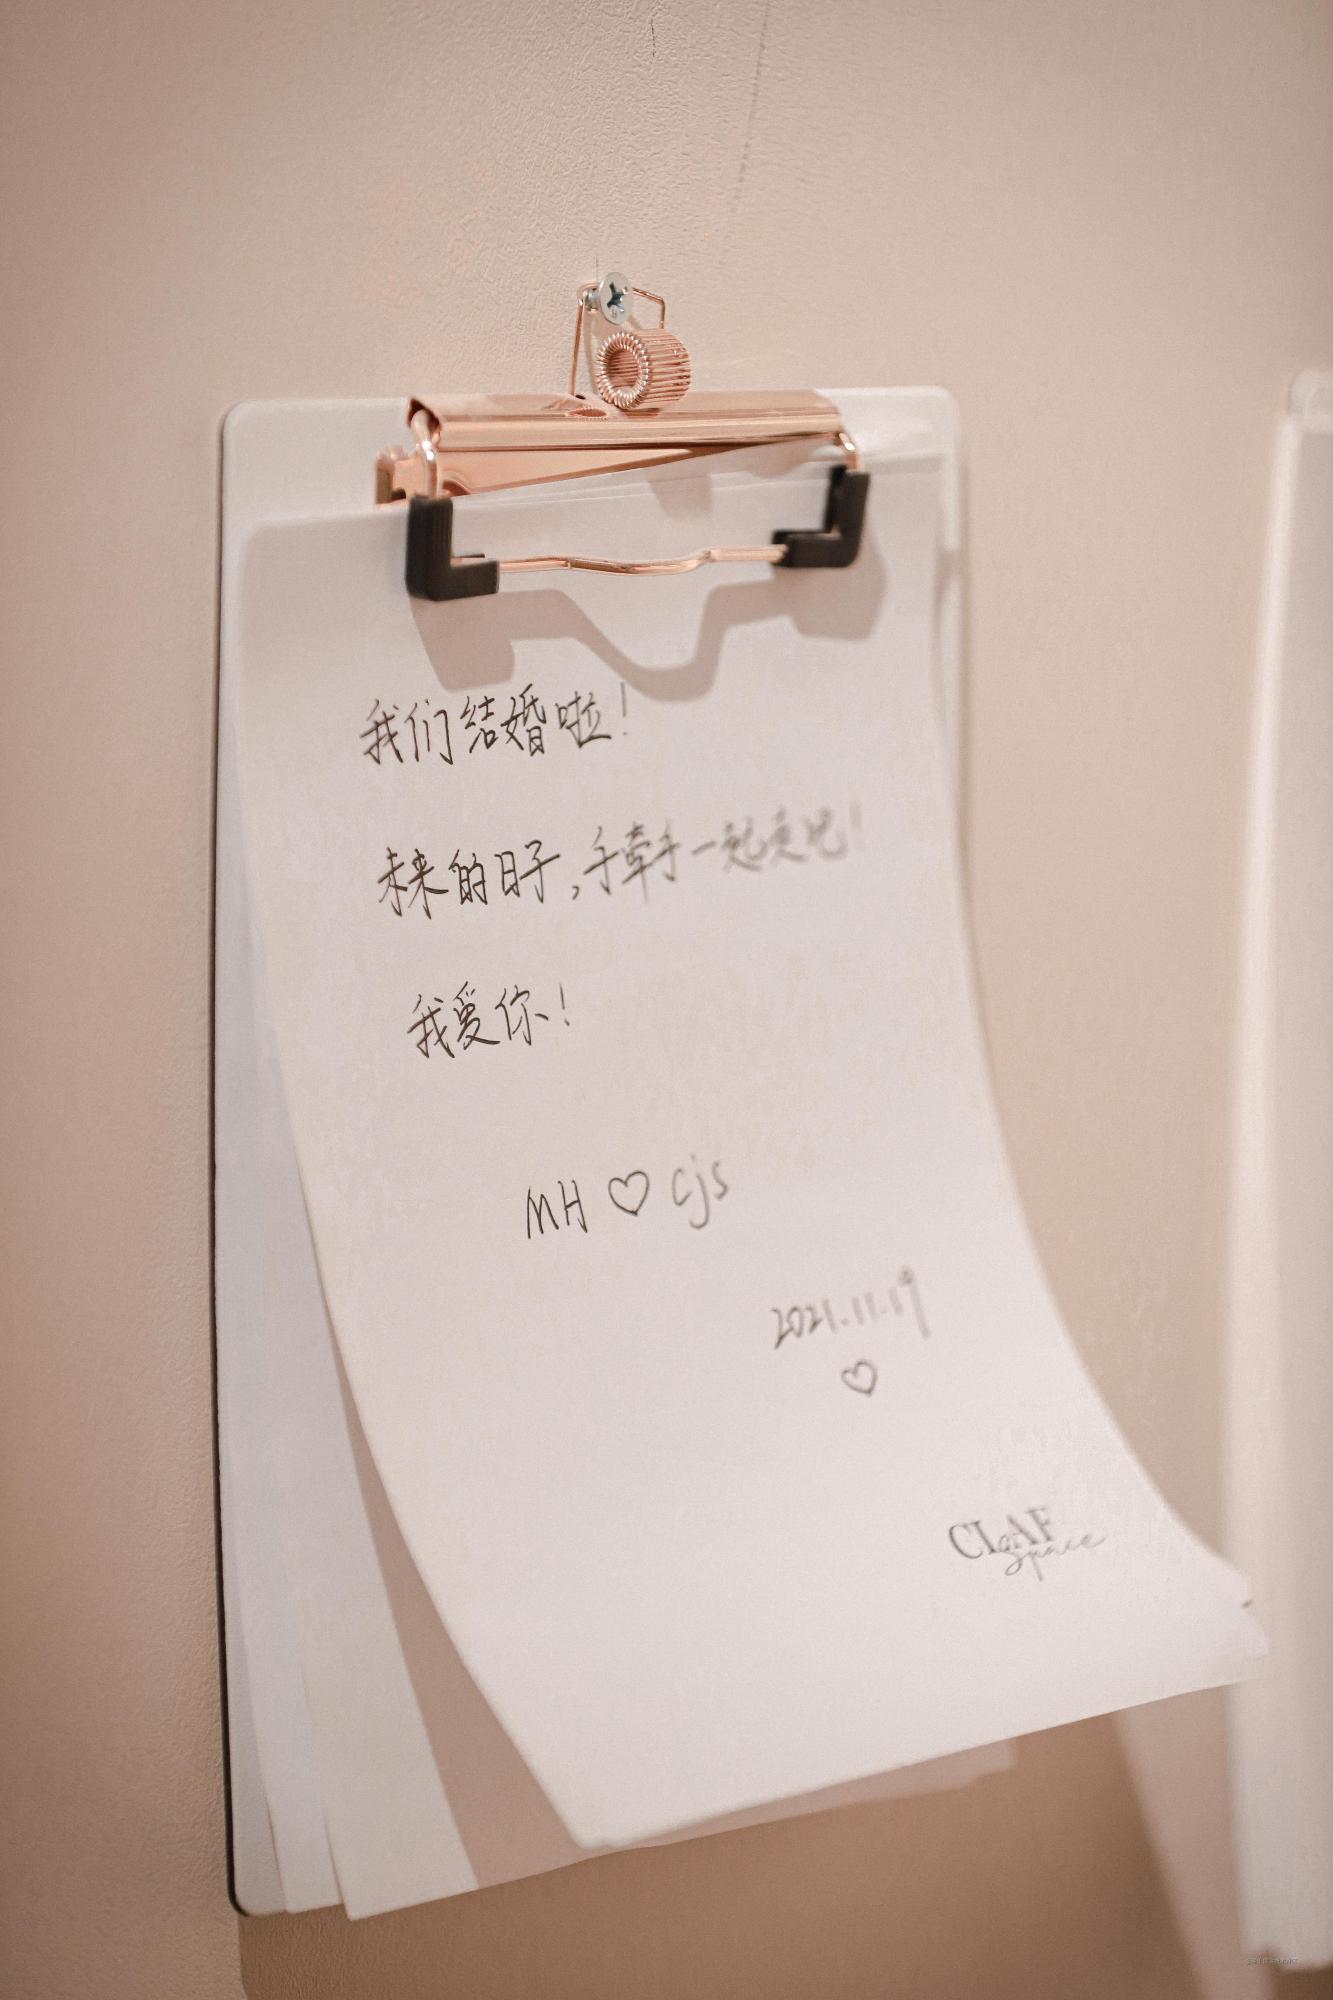 我们结婚啦！
未来的日子，手牵手一起走吧！
我爱你！
MH ♡ cjs
2021.11.19
♡
CLAF
Space